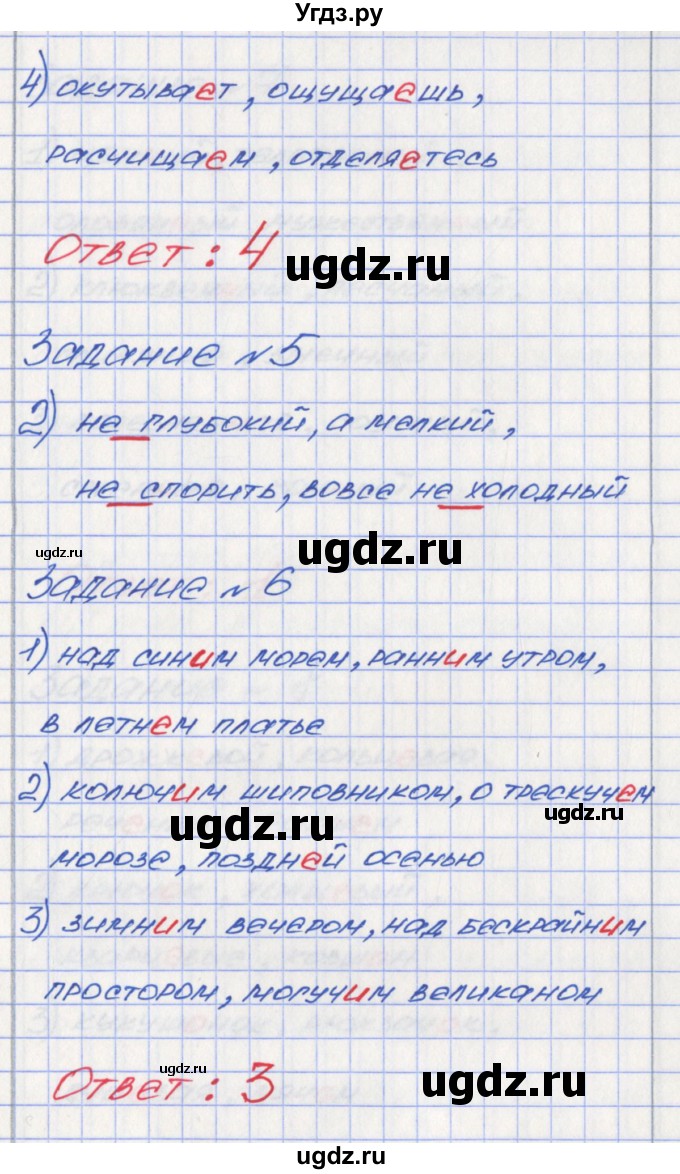 Угдз.ру
4) окутывает, ощущаешь,
расчищаем, отделяетесь
Ответ: 4
ugdz.ru
Задание №5
2) не глубокий, а мелкий,
не спорить, вовсе не холодный
ugdz.ru
ugdz.ru
Задание №6
1) над синим морем, ранним утром,
в летнем платье
2) колючим шиповником, о трескучем
ugdz.ru
ugdz.ru
морозе, поздней осенью
3) зимним вечером, над бескрайним
простором, могучим великаном
ugdz.ru
Ответ: 3
ugdz.ru
ugdz.ru